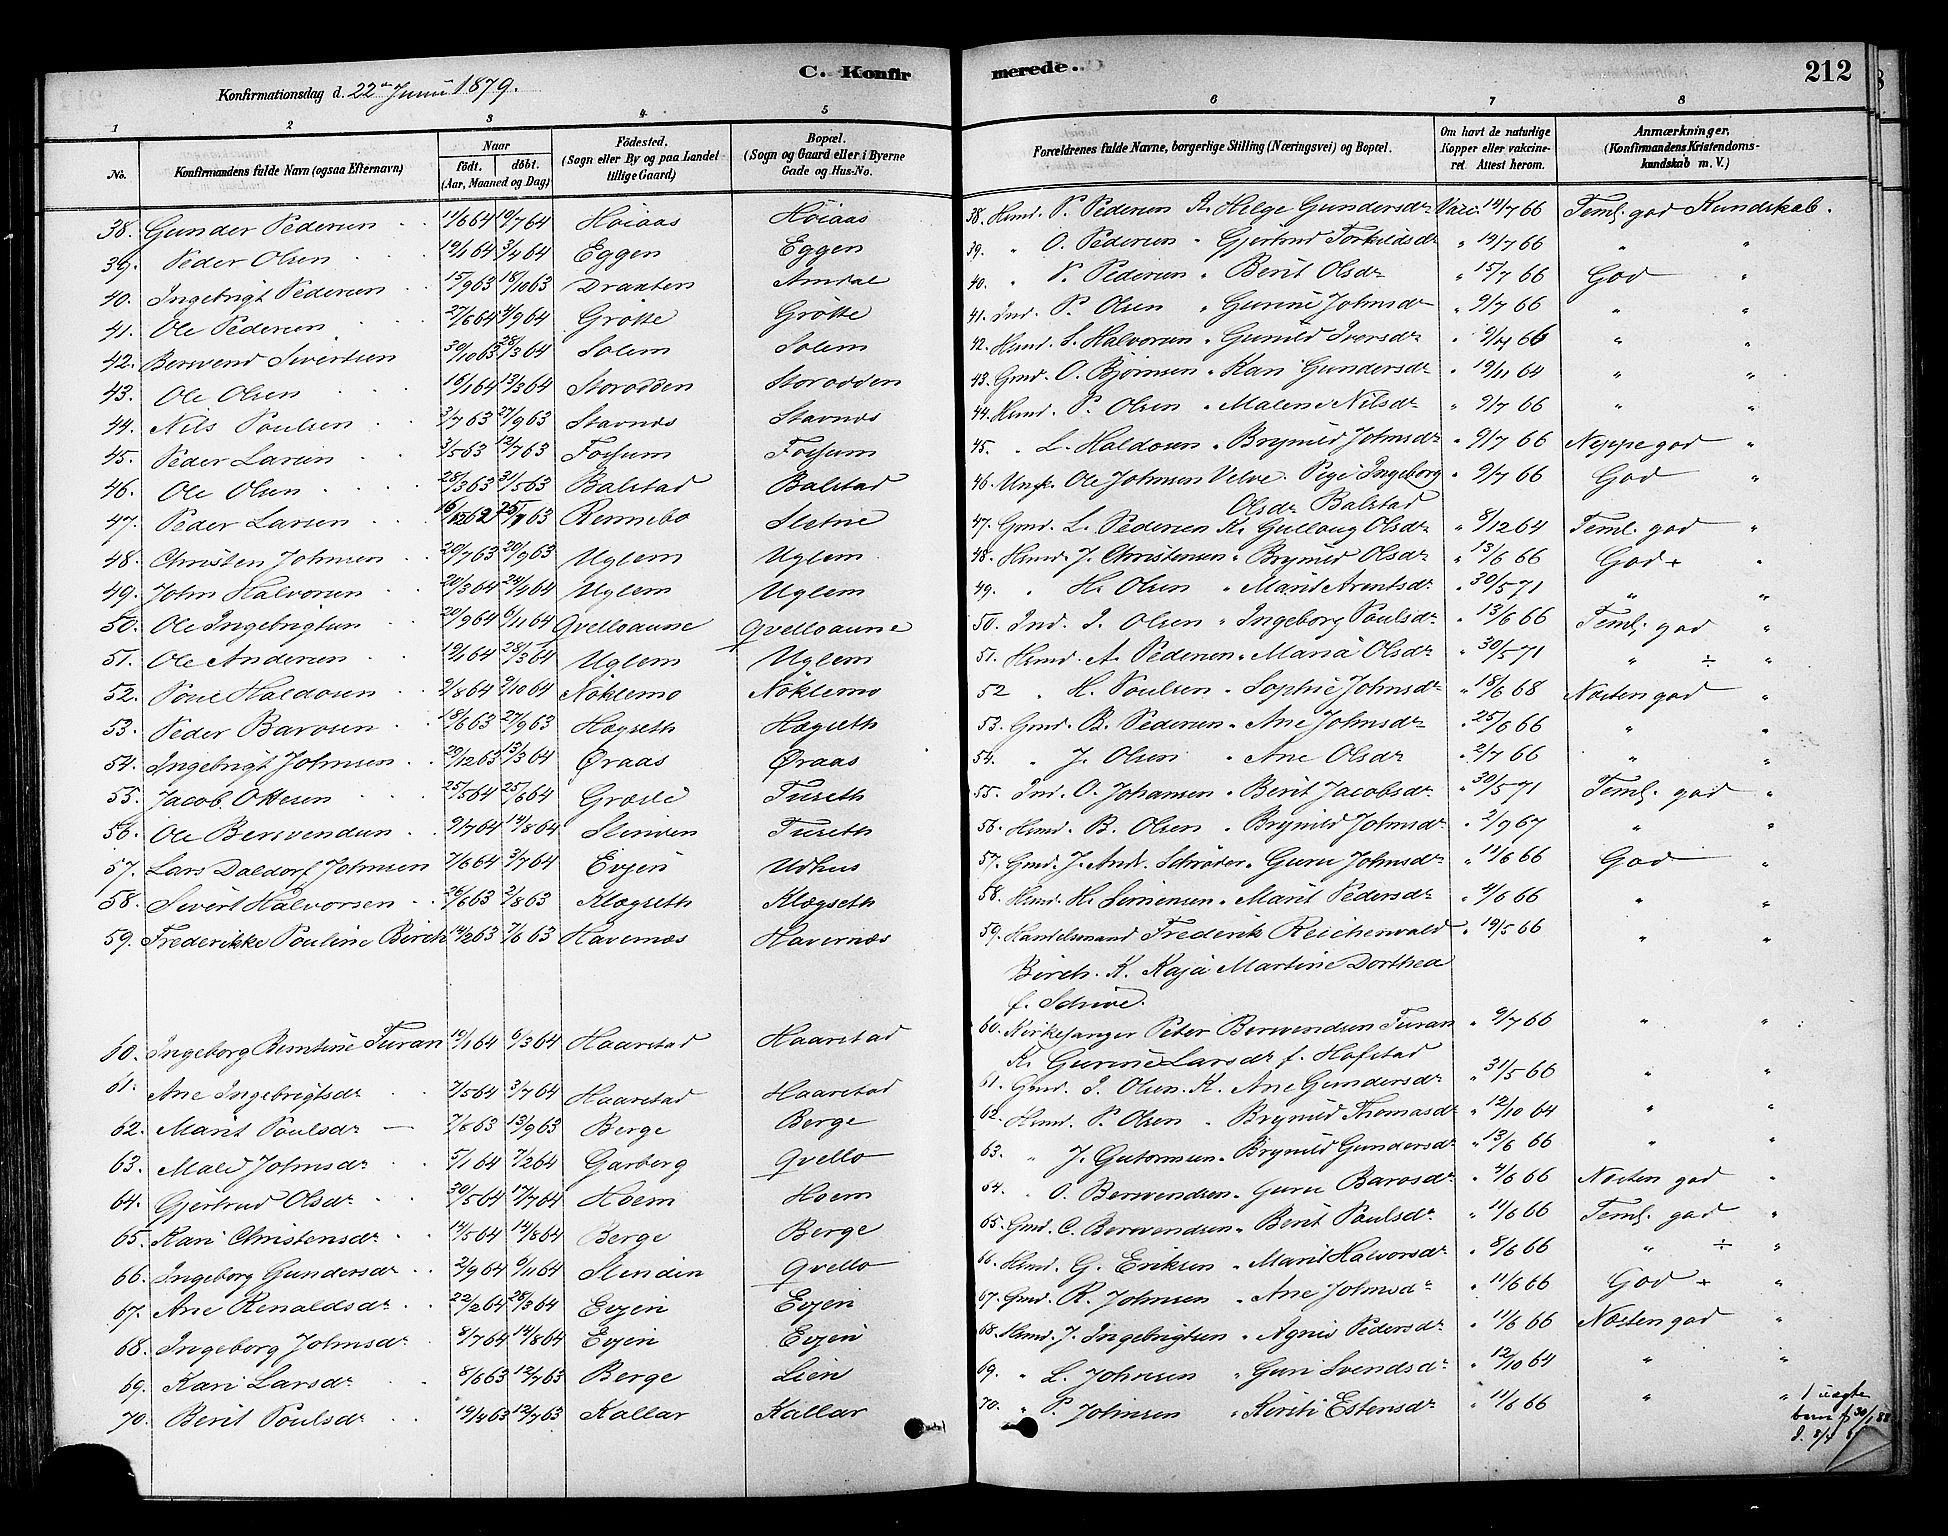 C. Konfirmerede.
212
Konfirmationsdag d. 22de Juni 1879.
1 2 3 4 5 6 7 8
No. Konfirmandens fulde Navn (ogsaa Efternavn) Naar født. døbt. (Aar, Maaned og Dag) Fødested. (Sogn eller By og paa Landet tillige Gaard) Bopæl. (Sogn og Gaard eller i Byerne Gade og Hus-No. Forældrenes fulde Navne, borgerlige Stilling (Næringsvei) og Bopæl. Om havt de naturlige Kopper eller vakcineret. Attest herom. Anmærkninger, (Konfirmandens Kristendomskundskab m. V.)
38. Gunder Pedersen 11/6 64 10/7 64 Höiaas Höiaas 38. Husmd. P. Pedersen K. Helge Gundersdr Vacc. 12/7 66 Teml. god Kundskab.
39. Peder Olsen 19/1 64 3/4 64 Eggen Eggen 39. " O. Pedersen " Gjertrud Torkildsdr " 12/7 66 " "
40. Ingebrigt Pedersen 15/9 63 18/10 63 Draxten Amdal 40. " P. Pedersen " Berit Olsdr " 15/7 66 God "
41. Ole Pedersen 27/6 64 4/9 64 Grötte Grötte 41. Ind. P. Olsen " Gurine Johnsdr " 9/7 66 " "
42. Bersvend Sivertsen 30/10 63 28/3 64 Solem Solem 42. Husmd. S. Halvorsen " Gunild Iversdr " 9/4 66 " "
43. Ole Olsen 16/1 64 13/3 64 Storodden Storodden 43. Gmd. O. Björnsen " Kari Gundersdr " 19/11 64 " "
44. Nils Poulsen 3/7 63 27/9 63 Stavnes Stavnes 44. Husmd. P. Olsen " Malene Nilsdr " 9/7 66 " "
45. Peder Larsen 3/5 63 12/7 63 Fossum Fossum 45. " L. Haldosen " Brynild Johnsdr " 9/7 66 Neppe god "
46. Ole Olsen 28/3 63 31/5 63 Balstad Balstad 46. Ungk. Ole Johnsen Velve. Pige Ingeborg " 9/7 66 God "
Olsdr Balstad
47. Peder Larsen 16/12 62 25/1 63 Rennebo Sletne 47. Gmd. L. Pedersen K. Gullaug Olsdr " 8/12 64 Teml. god "
48. Christen Johnsen 20/7 63 20/9 63 Uglem Uglem 48. Husmd. J. Christensen " Brynild Olsdr " 13/6 66 God + "
49. John Halvorsen 20/3 64 24/4 64 Uglem Uglem 49. " H. Olsen " Marit Arentsdr " 30/5 71 " "
50. Ole Ingebrigtsen 20/9 64 6/11 64 Qvelloaune Qvelloaune 50. Ind. I. Olsen " Ingeborg Poulsdr " 13/6 66 Teml. god "
51. Ole Andersen 19/1 64 28/3 64 Uglem Uglem 51. Husmd. A. Pedersen " Maria Olsdr " 30/5 71 " ÷ "
52. Povel Haldosen 9/8 64 9/10 64 Nöklemo Nöklemo 52 " H. Poulsen " Sophie Johnsdr " 18/6 68 Næsten god "
53. Peder Barosen 18/6 63 27/9 63 Hægseth Hægseth 53. Gmd. B. Pedersen " Ane Johnsdr " 25/6 66 " "
54. Ingebrigt Johnsen 20/12 63 13/3 64 Øraas Øraas 54. " J. Olsen " Ane Olsdr " 2/7 66 " "
55. Jacob Ottesen 25/5 64 25/6 64 Græsle Tuseth 55. Ind. O. Johansen " Berit Jacobsdr " 30/5 71 Teml. god "
56. Ole Bersvendsen 9/7 64 14/8 64 Stinven Tuseth 56. Husmd. B. Olsen " Brynild Johnsdr " 2/9 67 " "
57. Lars Daldorf Johnsen 7/6 64 3/7 64 Evjen Udhus 57. Gmd. J. Andr. Schröder " Guru Johnsdr " 11/6 66 God "
58. Sivert Halvorsen 26/6 63 2/8 63 Klægseth Klægseth 58. Husmd. H. Simensen " Marit Pedersdr " 4/6 66 " "
59. Frederikke Pouline Birch 14/2 63 7/6 63 Havernæs Havernæs 59. Handelsmand Frederik Reichenvald " 19/5 66 " "
Birch. K. Kaja Martine Dorthea
f. Schive.
60. Ingeborg Berntine Turan 10/1 64 6/3 64 Haarstad Haarstad 60. Kirkesanger Peter Bersvendsen Turan " 9/7 66 " "
K. Gurine Larsdr f. Hofstad
61. Ane Ingebrigtsdr 7/5 64 3/7 64 Haarstad Haarstad 61. Gmd. I. Olsen. K. Ane Gundersdr " 31/5 66 " "
62. Marit Poulsdr 7/6 63 13/9 63 Berge Berge 62. Husmd. P. Olsen " Brynild Thomasdr " 12/10 64 " "
63. Malé Johnsdr 5/1 64 7/2 64 Garberg Qvello 63. " J. Gutormsen " Brynild Gundersdr " 13/6 66 " "
64. Gjertrud Olsdr 30/5 64 17/7 64 Hoem Hoem 64. " O. Bersvendsen " Guru Barosdr " 4/6 66 Næsten god "
65. Kari Christensdr 14/5 64 14/8 64 Berge Berge 65. Gmd. C. Bersvendsen " Berit Poulsdr " 11/6 66 Teml. god "
66. Ingeborg Gundersdr 2/9 64 6/11 64 Slinden Qvello 66. Husmd. G. Eriksen " Marit Halvorsdr " 8/6 66 " ÷ "
67. Ane Renaldsdr 22/2 64 28/3 64 Evjen Evjen 67. Gmd. R. Johnsen " Ane Johnsdr " 11/6 66 God + "
68. Ingeborg Johnsdr 8/7 64 14/8 64 Evjen Evjen 68. Husmd. J. Ingebrigtsen " Agnis Pedersdr " 11/6 66 Næsten god "
69. Kari Larsdr 8/6 63 12/7 63 Berge Lien 69. " L. Johnsen " Guri Svendsdr " 12/10 64 " "
70. Berit Poulsdr 19/4 63 12/7 63 Kallar Kallar 70. " P. Johnsen " Kirsti Estensdr " 11/6 66 " "
1 uægte
barn f. 30/1 88